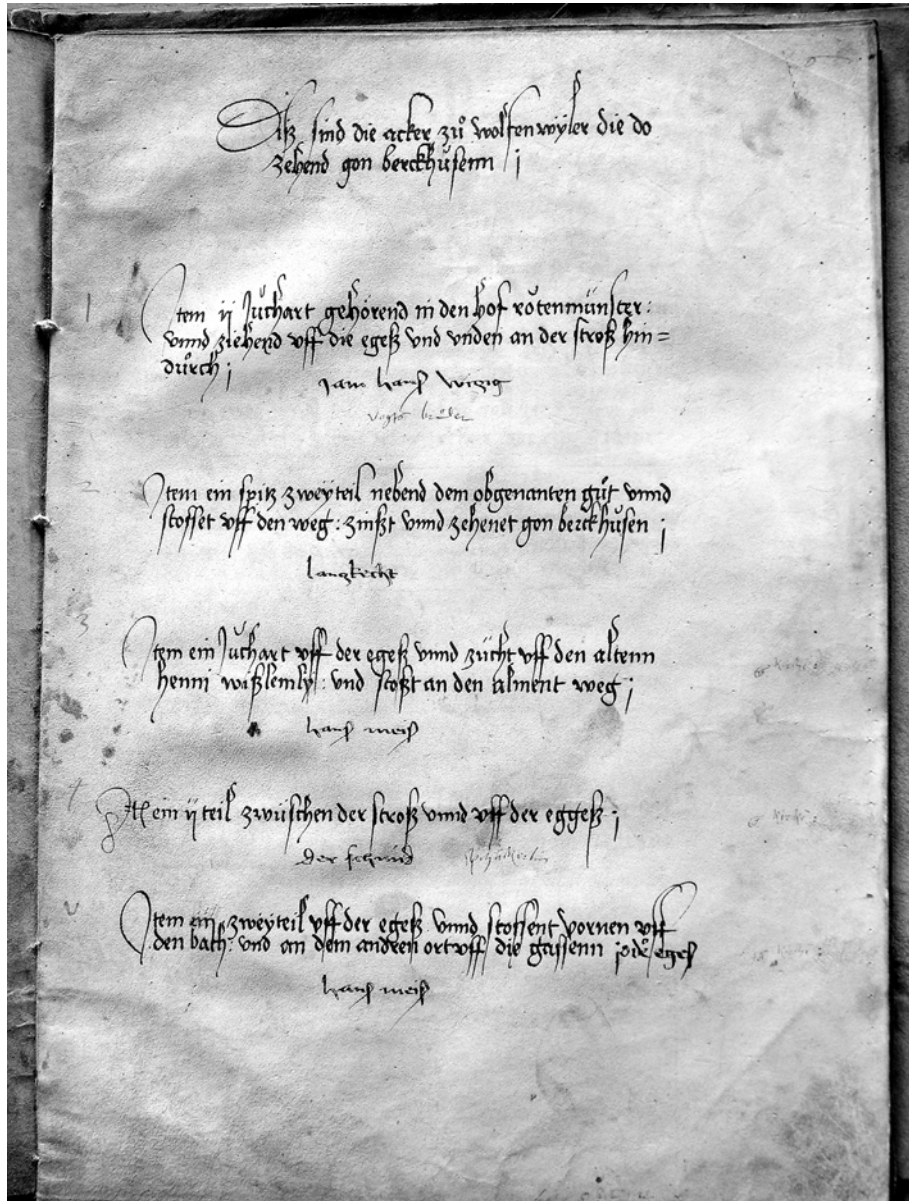 Ditz sind die acker zů wolfenwyler die do
zehend gon berckhůsenn ;
1
Item ij Juchart gehörend in den hof rotenmünster :
vnnd ziehend vff die egeß vnd vnden an der stroß hin=
dürch ;
hanß witzig
vogts brůder
2
Item ein spitz zweyteil nebend dem obgenanten gůt vnnd
stosset vff den weg : zinßt vnnd zehenet gon berckhůsen ;
lantzkecht
3
Item ein Juchart vff der egeß vnnd zücht vff den altenn
henni wißlemly : vnd stoßt an den alment weg ;
hanß meiß
Item ein ij teil zwüschen der stroß vnnd vff der eggeß ;
der schmid
v
Item iiij zweyteil vff der egeß vnnd stossent vornen vff
den bach : vnd an dem andren ort vff die gassenn egeß
hanß meiß